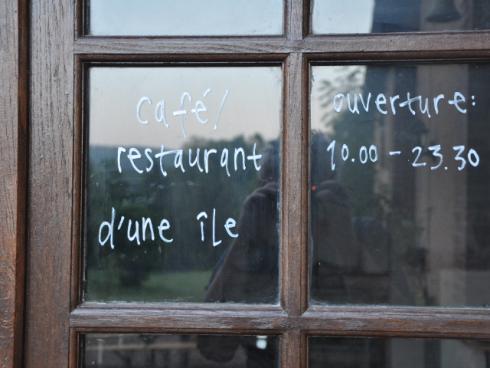 café/
restaurant
d'une île
ouverture:
10.00 - 23.30